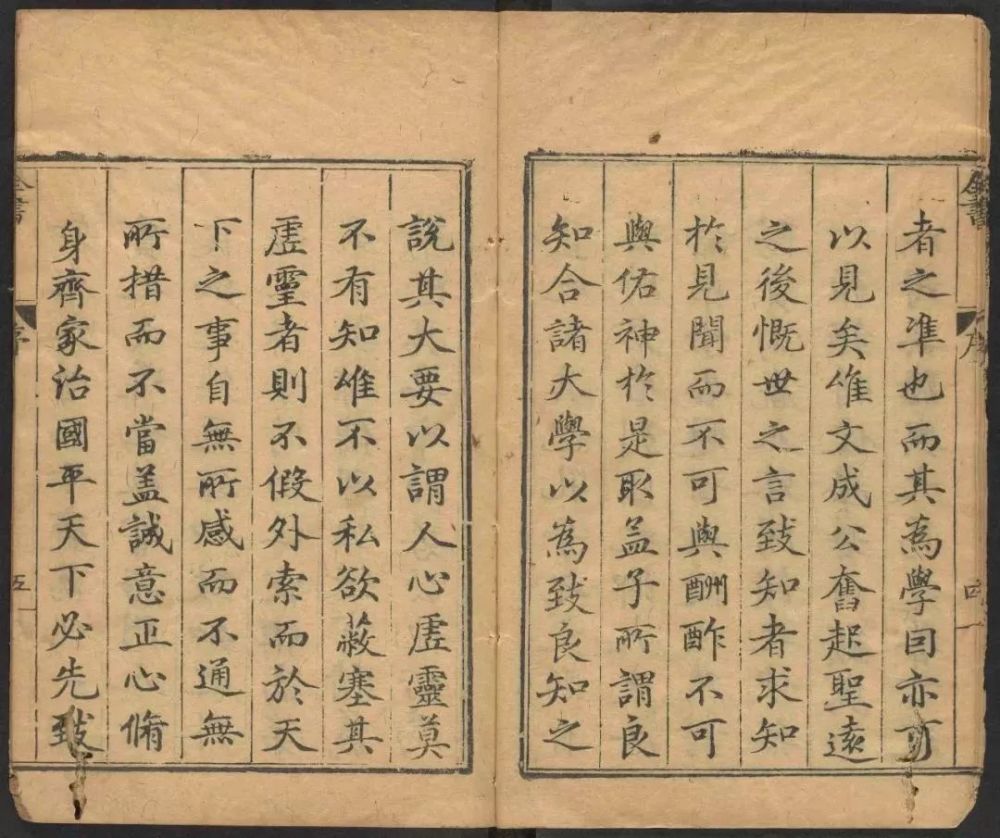 全書
序
四
者之準也而其為學因亦可
以見矣惟文成公奮起聖遠
之後慨世之言致知者求知
於見聞而不可與酬酢不可
與佑神於是取孟子所謂良
知合諸大學以為致良知之
說其大要以謂人心虛靈莫
不有知惟不以私欲蔽塞其
虛靈者則不假外索而於天
下之事自無所感而不通無
所措而不當蓋誠意正心脩
身齊家治國平天下必先致
全書
序
五